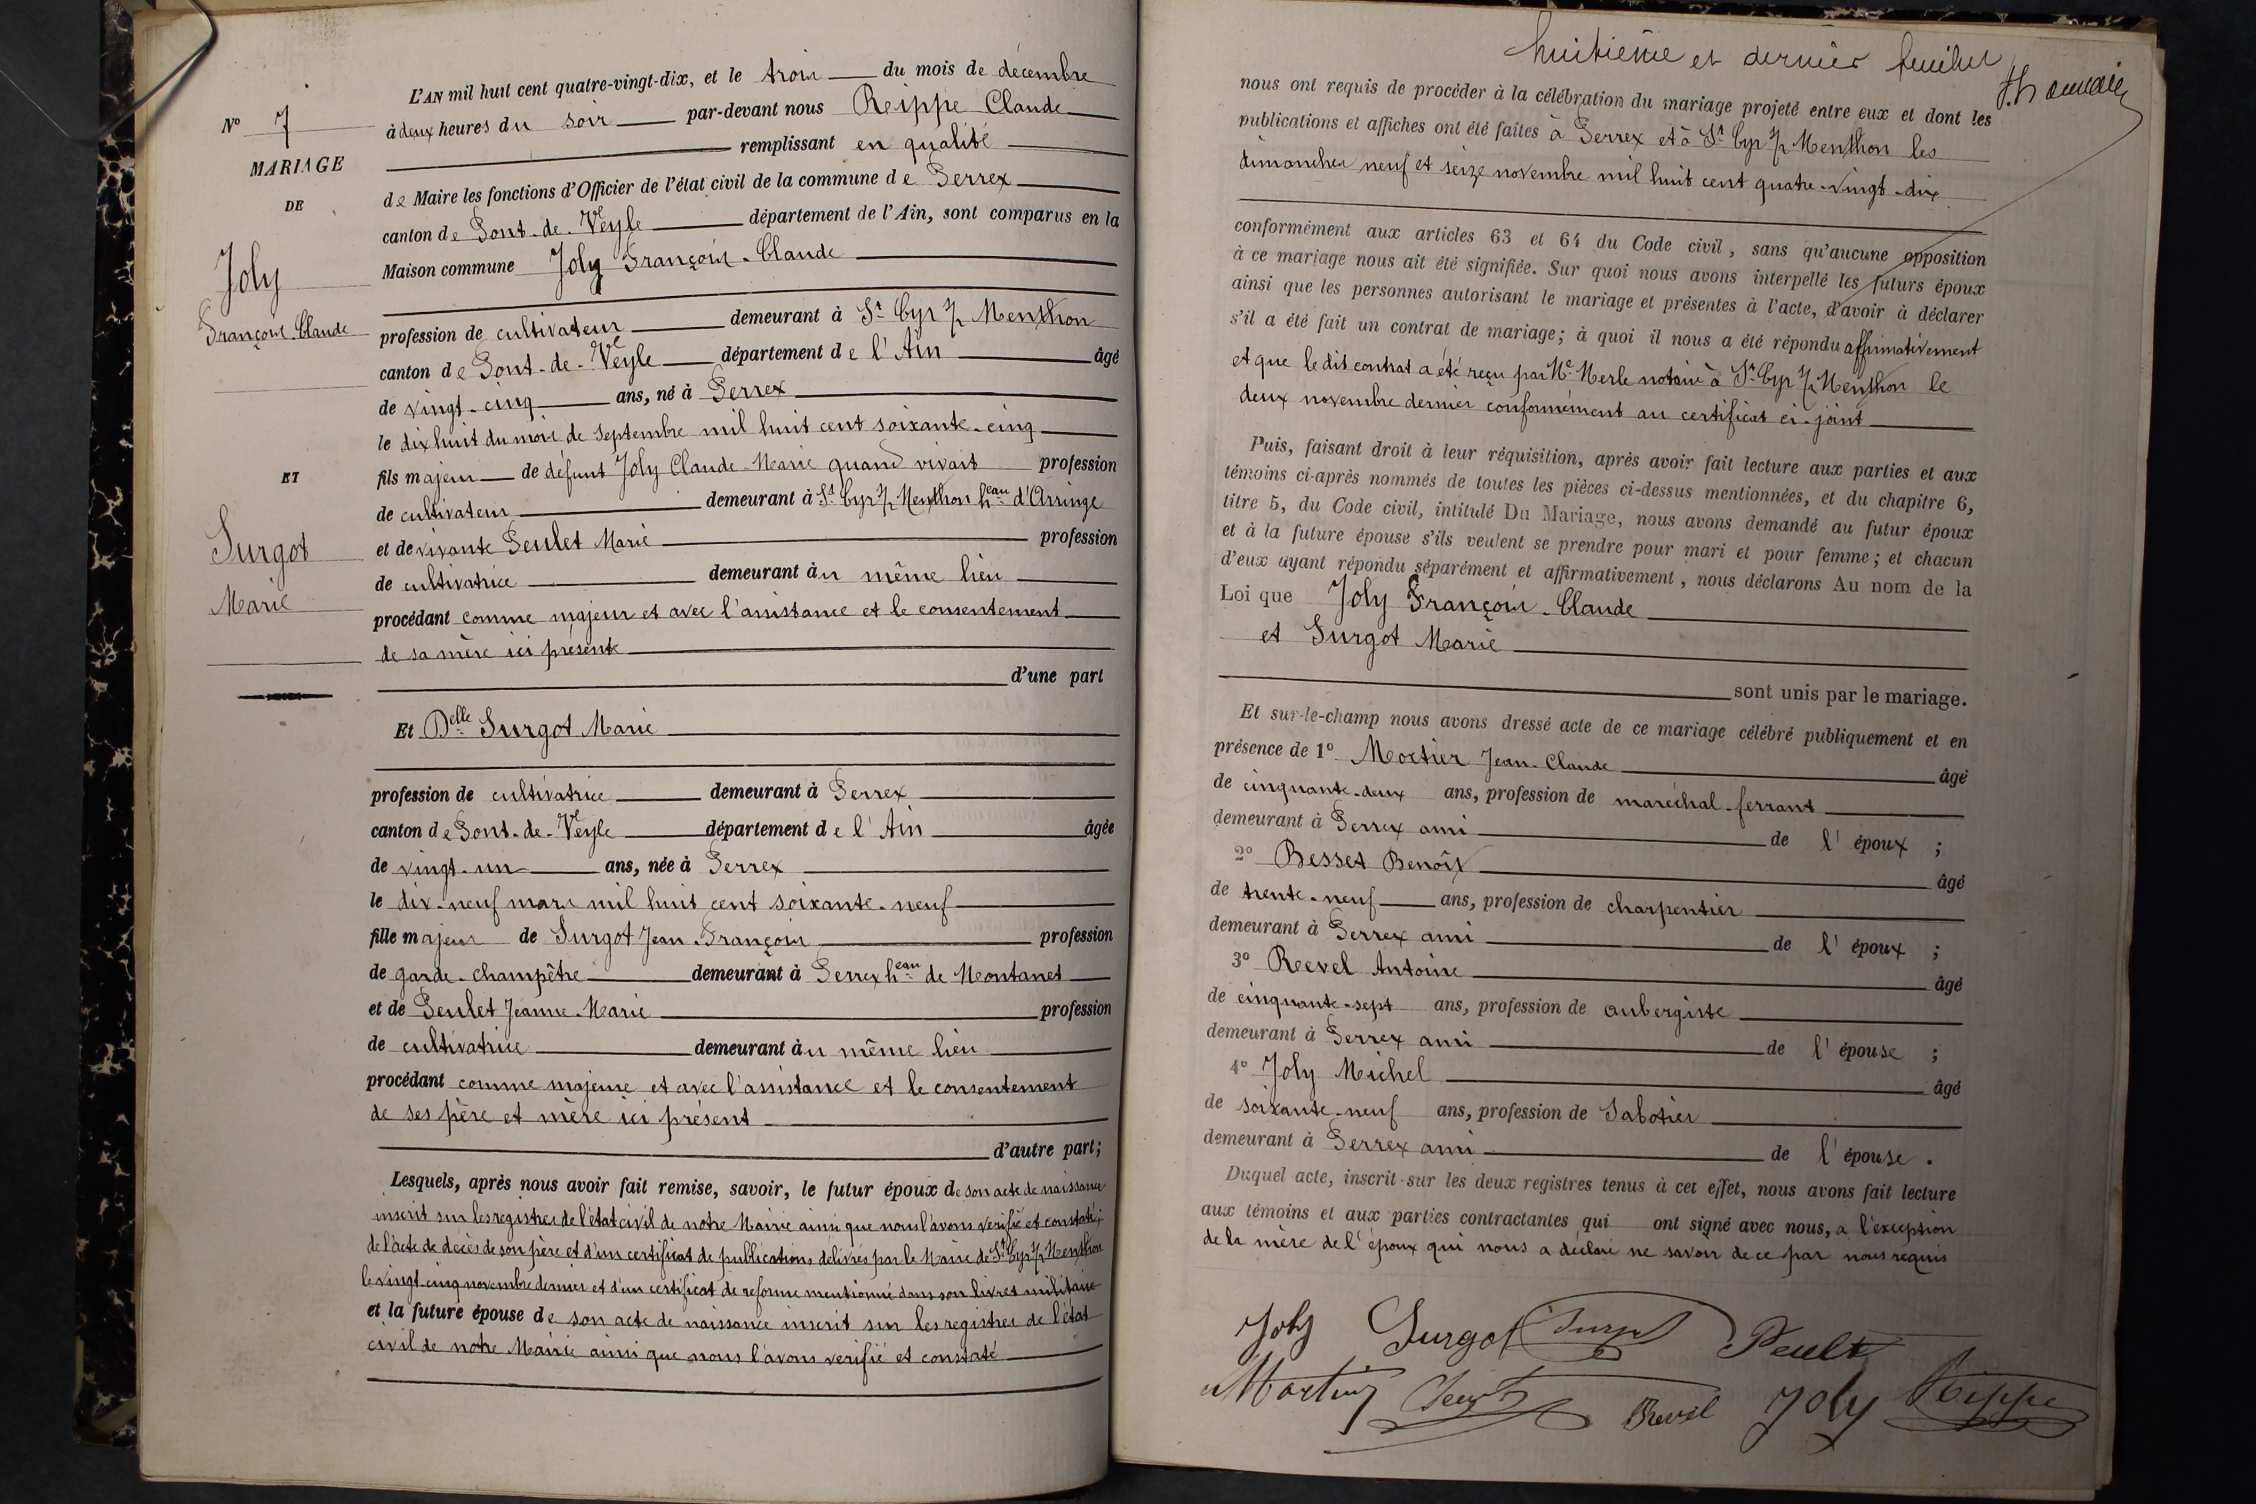 L'AN mil huit cent quatre-vingt-dix, et le trois du mois de décembre
N° 7
à deux heures du soir par-devant nous Reippe Claude
remplissant en qualité
MARIAGE
de Maire les fonctions d'Officier de l'état civil de la commune de Perrex
DE
canton de Pont-de-Veyle département de l'Ain, sont comparus en la
Maison commune Joly François-Claude
Joly
François-Claude
profession de cultivateur demeurant à St Cyr s/ Menthon
canton de Pont-de-Veyle département de l'Ain âgé
de vingt-cinq ans, né à Perrex
le dix huit du mois de Septembre mil huit cent soixante-cinq
fils majeur de défunt Joly Claude-Marie quand vivait profession
ET
de cultivateur demeurant à St Cyr s/ Menthon heau d'Arringe
et de vivante Peulet Marie profession
Surgot
de cultivatrice demeurant au même lieu
Marie
procédant comme majeur et avec l'assistance et le consentement
de sa mère ici présente
d'une part
Et Delle Surgot Marie
profession de cultivatrice demeurant à Perrex
canton de Pont-de-Veyle département de l'Ain âgée
de vingt-un ans, née à Perrex
le dix-neuf mars mil huit cent soixante-neuf
fille majeur de Surgot Jean-François profession
de garde-champêtre demeurant à Perrex heau de Montanet
et de Peulet Jeanne-Marie profession
de cultivatrice demeurant au même lieu
procédant comme majeure et avec l'assistance et le consentement
de ses père et mère ici présent
d'autre part;
Lesquels, après nous avoir fait remise, savoir, le futur époux de son acte de naissance
inscrit sur les registres de l'état civil de notre Mairie ainsi que nous l'avons verifié et constaté;
de l'acte de décès de son père et d'un certificat de publications délivrés par le Maire de St Cyr s/ Menthon
le vingt-cinq novembre dernier et d'un certificat de reforme mentionné dans son livret militaire
et la future épouse de son acte de naissance inscrit sur les registres de l'état
civil de notre Mairie ainsi que nous l'avons verifié et constaté
huitième et dernier feuillet
nous ont requis de procéder à la célébration du mariage projeté entre eux et dont les
publications et affiches ont été faites à Perrex et à St Cyr s/ Menthon les
dimanches neuf et seize novembre mil huit cent quatre-vingt-dix
conformément aux articles 63 et 64 du Code civil, sans qu'aucune opposition
à ce mariage nous ait été signifiée. Sur quoi nous avons interpellé les futurs époux
ainsi que les personnes autorisant le mariage et présentes à l'acte, d'avoir à déclarer
s'il a été fait un contrat de mariage; à quoi il nous a été répondu affirmativement
et que le dit contrat a été reçu par Me Merle notaire à St Cyr s/ Menthon le
deux novembre dernier conformément au certificat ci-joint
Puis, faisant droit à leur réquisition, après avoir fait lecture aux parties et aux
témoins ci-après nommés de toutes les pièces ci-dessus mentionnées, et du chapitre 6,
titre 5, du Code civil, intitulé Du Mariage, nous avons demandé au futur époux
et à la future épouse s'ils veulent se prendre pour mari et pour femme; et chacun
d'eux ayant répondu séparément et affirmativement, nous déclarons Au nom de la
Loi que Joly François-Claude
et Surgot Marie
sont unis par le mariage.
Et sur-le-champ nous avons dressé acte de ce mariage célébré publiquement et en
présence de 1° Mortier Jean-Claude âgé
de cinquante-deux ans, profession de maréchal-ferrant
demeurant à Perrex ami de l'époux ;
2° Besset Benoît âgé
de trente-neuf ans, profession de charpentier
demeurant à Perrex ami de l'époux ;
3° Revel Antoine âgé
de cinquante-sept ans, profession de aubergiste
demeurant à Perrex ami de l'épouse ;
4° Joly Michel âgé
de soixante-neuf ans, profession de Sabotier
demeurant à Perrex ami de l'épouse.
Duquel acte, inscrit sur les deux registres tenus à cet effet, nous avons fait lecture
aux témoins et aux parties contractantes qui ont signé avec nous, a l'exception
de la mère de l'époux qui nous a déclaré ne savoir de ce par nous requis
Joly Surgot Surgot Peulet
Mortier Revel Joly Reippe